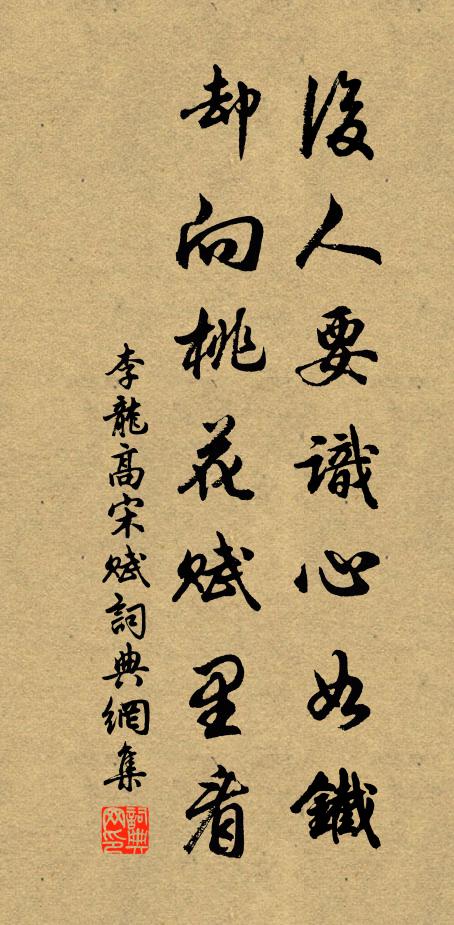 後人要識心如鐵
却向桃花賦里看
李龍高宋賦詞典網集
詞典網印